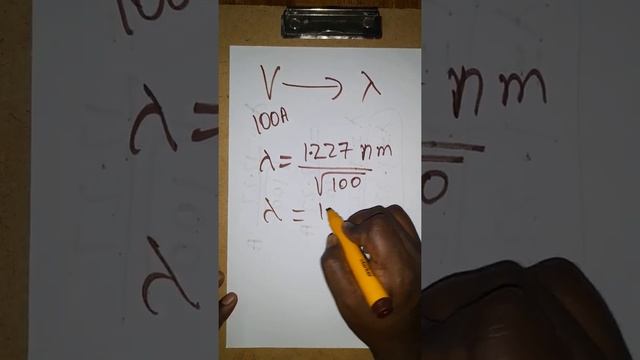 V → λ
100A
λ = 1.227 nm
√100
λ = 1